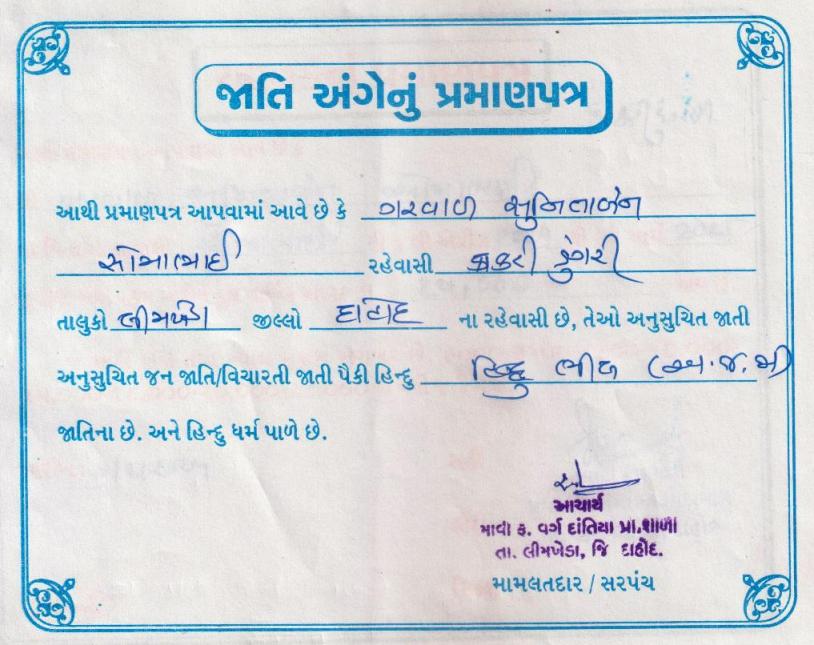 જાતિ અંગેનું પ્રમાણપત્ર
આથી પ્રમાણપત્ર આપવામાં આવે છે કે ગરવાળ સુનિતાબેન
સોમાભાઈ રહેવાસી ડુંગરી
તાલુકો લીમખેડા જીલ્લો દાહોદ ના રહેવાસી છે, તેઓ અનુસુચિત જાતી
અનુસુચિત જન જાતિ/વિચારતી જાતી પૈકી હિન્દુ હિન્દુ ભીલ (અ.જ.જા)
જાતિના છે. અને હિન્દુ ધર્મ પાળે છે.
આચાર્ય
માવી ફ. વર્ગ દાંતિયા પ્રા.શાળા
તા. લીમખેડા, જિ દાહોદ.
મામલતદાર / સરપંચ